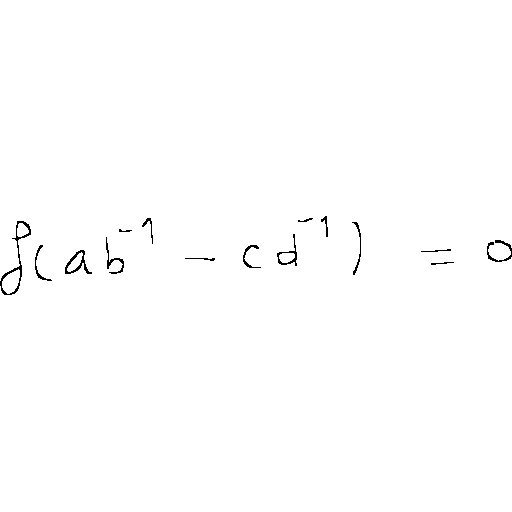 f(ab⁻¹ - cd⁻¹) = 0